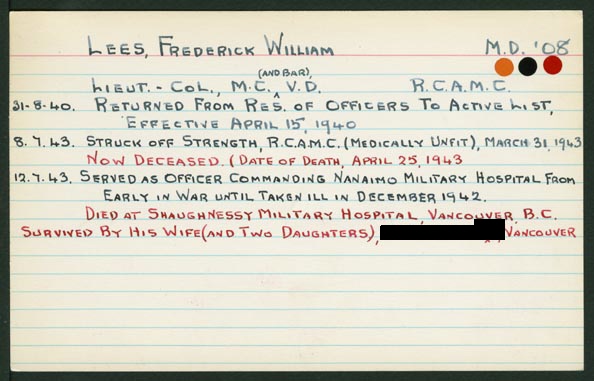 LEES, FREDERICK WILLIAM M.D. '08
(AND BAR),
LIEUT.-COL., M.C. V.D. R.C.A.M.C.
31-8-40. RETURNED FROM RES. OF OFFICERS TO ACTIVE LIST,
EFFECTIVE APRIL 15, 1940
8.7.43. STRUCK OFF STRENGTH, R.C.A.M.C. (MEDICALLY UNFIT), MARCH 31, 1943
NOW DECEASED. (DATE OF DEATH, APRIL 25, 1943
12.7.43. SERVED AS OFFICER COMMANDING NANAIMO MILITARY HOSPITAL FROM
EARLY IN WAR UNTIL TAKEN ILL IN DECEMBER 1942.
DIED AT SHAUGHNESSY MILITARY HOSPITAL, VANCOUVER, B.C.
SURVIVED BY HIS WIFE (AND TWO DAUGHTERS), VANCOUVER